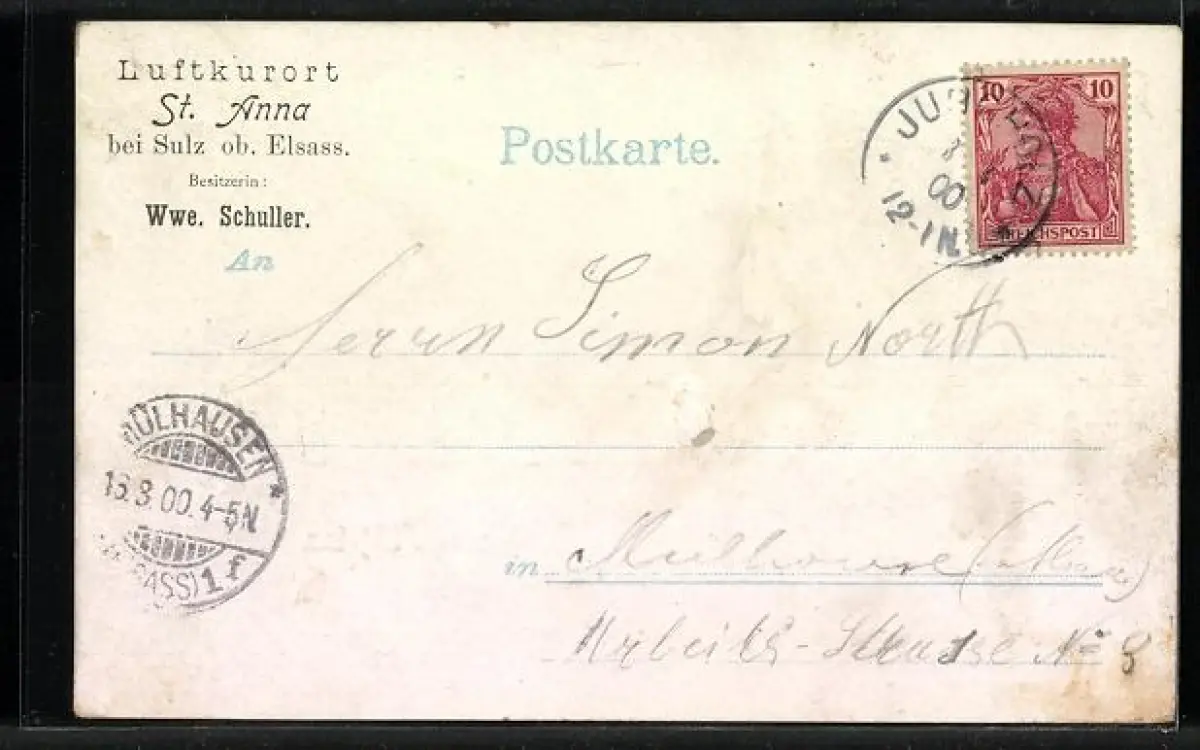 Luftkurort
St. Anna
bei Sulz ob. Elsass.
Besitzerin:
Wwe. Schuller.
Postkarte.
10 10
REICHSPOST
JU
00
12-1N.
An
Herrn Simon North
MÜLHAUSEN
8.00.4-5N
1 f
in Mülhouse
Strasse No 8